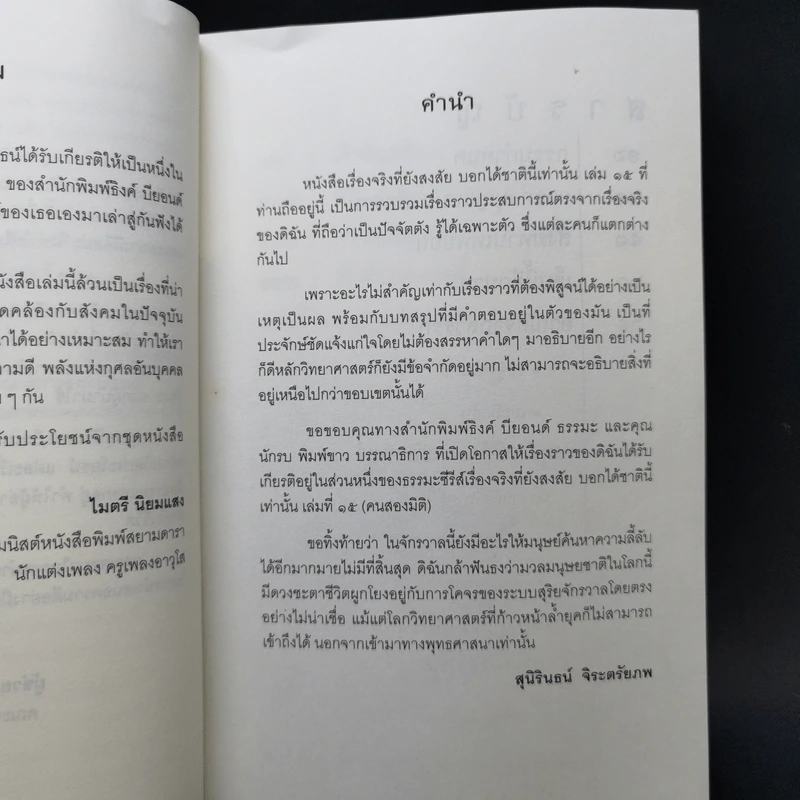 ธน์ได้รับเกียรติให้เป็นหนึ่งใน
ของสำนักพิมพ์ธิงค์ บียอนด์
ของเธอเองมาเล่าสู่กันฟังได้
นังสือเล่มนี้ล้วนเป็นเรื่องที่น่า
ดคล้องกับสังคมในปัจจุบัน
าได้อย่างเหมาะสม ทำให้เรา
ามดี พลังแห่งกุศลอันบุคคล
ๆ กัน
รับประโยชน์จากชุดหนังสือ
ไมตรี นิยมแสง
มนิสต์หนังสือพิมพ์สยามดารา
นักแต่งเพลง ครูเพลงอาวุโส
คำนำ
หนังสือเรื่องจริงที่ยังสงสัย บอกได้ชาตินี้เท่านั้น เล่ม ๑๕ ที่
ท่านถืออยู่นี้ เป็นการรวบรวมเรื่องราวประสบการณ์ตรงจากเรื่องจริง
ของดิฉัน ที่ถือว่าเป็นปัจจัตตัง รู้ได้เฉพาะตัว ซึ่งแต่ละคนก็แตกต่าง
กันไป
เพราะอะไรไม่สำคัญเท่ากับเรื่องราวที่ต้องพิสูจน์ได้อย่างเป็น
เหตุเป็นผล พร้อมกับบทสรุปที่มีคำตอบอยู่ในตัวของมัน เป็นที่
ประจักษ์ชัดแจ้งแก่ใจโดยไม่ต้องสรรหาคำใดๆ มาอธิบายอีก อย่างไร
ก็ดีหลักวิทยาศาสตร์ก็ยังมีข้อจำกัดอยู่มาก ไม่สามารถจะอธิบายสิ่งที่
อยู่เหนือไปกว่าขอบเขตนั้นได้
ขอขอบคุณทางสำนักพิมพ์ธิงค์ บียอนด์ ธรรมะ และคุณ
นักรบ พิมพ์ขาว บรรณาธิการ ที่เปิดโอกาสให้เรื่องราวของดิฉันได้รับ
เกียรติอยู่ในส่วนหนึ่งของธรรมะซีรีส์เรื่องจริงที่ยังสงสัย บอกได้ชาตินี้
เท่านั้น เล่มที่ ๑๕ (คนสองมิติ)
ขอทิ้งท้ายว่า ในจักรวาลนี้ยังมีอะไรให้มนุษย์ค้นหาความลี้ลับ
ได้อีกมากมายไม่มีที่สิ้นสุด ดิฉันกล้าฟันธงว่ามวลมนุษยชาติในโลกนี้
มีดวงชะตาชีวิตผูกโยงอยู่กับการโคจรของระบบสุริยจักรวาลโดยตรง
อย่างไม่น่าเชื่อ แม้แต่โลกวิทยาศาสตร์ที่ก้าวหน้าล้ำยุคก็ไม่สามารถ
เข้าถึงได้ นอกจากเข้ามาทางพุทธศาสนาเท่านั้น
สุนิรินธน์ จิระตรัยภพ